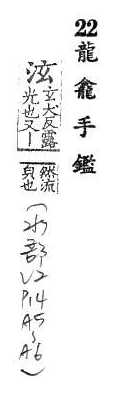 22龍龕手鑑
泫玄犬反露
光也又丨
㳘流
皃也
(水部
V2
P14
A5
~
A6)